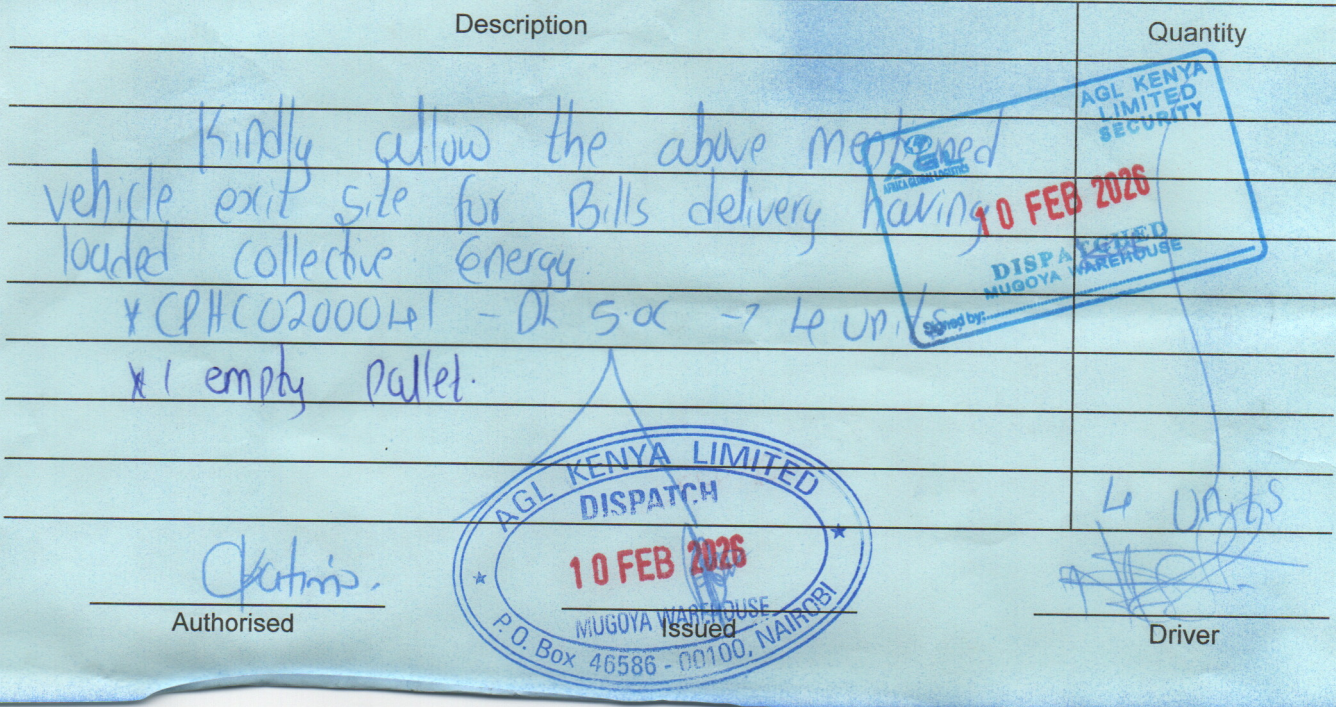 Description Quantity
Kindly allow the above mentioned
vehicle exit site for Bills delivery having
loaded collective Energy.
*CPHC0200041 - DL 5.0C → 4 units
*1 empty pallet.
4 units
AGL KENYA
LIMITED
SECURITY
AGL
AFRICA GLOBAL LOGISTICS
10 FEB 2026
DISPATCHED
MUGOYA WAREHOUSE
Signed by:
AGL KENYA LIMITED
DISPATCH
10 FEB 2026
MUGOYA WAREHOUSE
P.O. Box 46586 - 00100, NAIROBI
Authorised Issued Driver